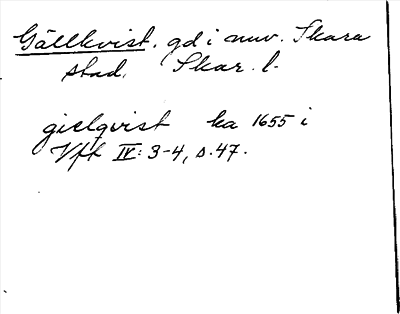 Gällkvist. gd i nuv. Skara
stad. Skar. l.
gielqvist ka 1655 i
Vft IV: 3-4, s. 47.